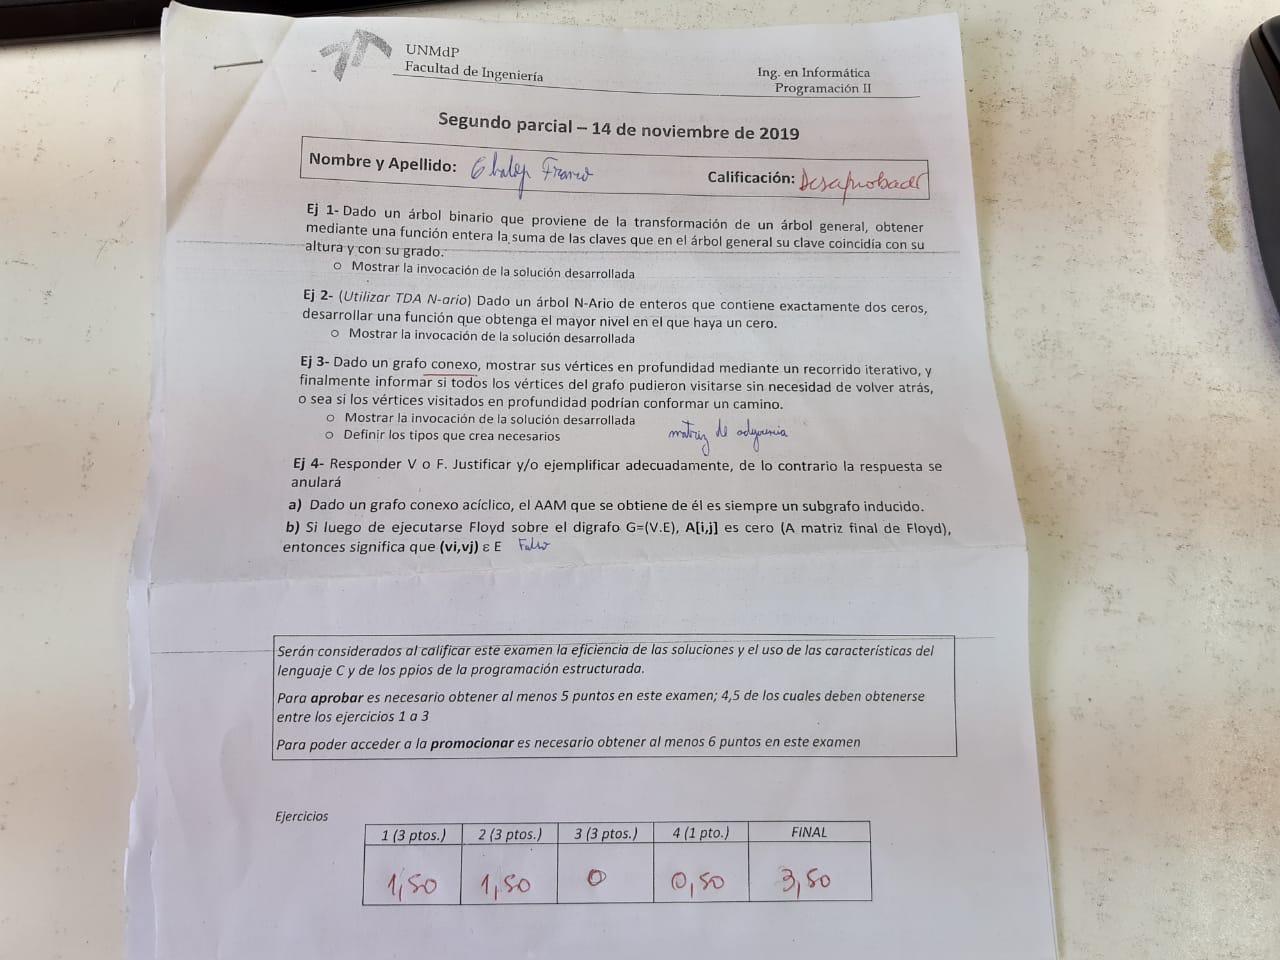 UNMdP
Facultad de Ingeniería
Ing. en Informática
Programación II
Segundo parcial – 14 de noviembre de 2019
Nombre y Apellido: Franco
Calificación: Desaprobado
Ej 1- Dado un árbol binario que proviene de la transformación de un árbol general, obtener
mediante una función entera la suma de las claves que en el árbol general su clave coincidía con su
altura y con su grado.
o Mostrar la invocación de la solución desarrollada
Ej 2- (Utilizar TDA N-ario) Dado un árbol N-Ario de enteros que contiene exactamente dos ceros,
desarrollar una función que obtenga el mayor nivel en el que haya un cero.
o Mostrar la invocación de la solución desarrollada
Ej 3- Dado un grafo conexo, mostrar sus vértices en profundidad mediante un recorrido iterativo, y
finalmente informar si todos los vértices del grafo pudieron visitarse sin necesidad de volver atrás,
o sea si los vértices visitados en profundidad podrían conformar un camino.
o Mostrar la invocación de la solución desarrollada
o Definir los tipos que crea necesarios
matriz de adyacencia
Ej 4- Responder V o F. Justificar y/o ejemplificar adecuadamente, de lo contrario la respuesta se
anulará
a) Dado un grafo conexo acíclico, el AAM que se obtiene de él es siempre un subgrafo inducido.
b) Si luego de ejecutarse Floyd sobre el digrafo G=(V.E), A[i,j] es cero (A matriz final de Floyd),
entonces significa que (vi,vj) ε E Falso
Serán considerados al calificar este examen la eficiencia de las soluciones y el uso de las características del
lenguaje C y de los ppios de la programación estructurada.
Para aprobar es necesario obtener al menos 5 puntos en este examen; 4,5 de los cuales deben obtenerse
entre los ejercicios 1 a 3
Para poder acceder a la promocionar es necesario obtener al menos 6 puntos en este examen
Ejercicios
1 (3 ptos.) 2 (3 ptos.) 3 (3 ptos.) 4 (1 pto.) FINAL
1,50 1,50 0 0,50 3,50